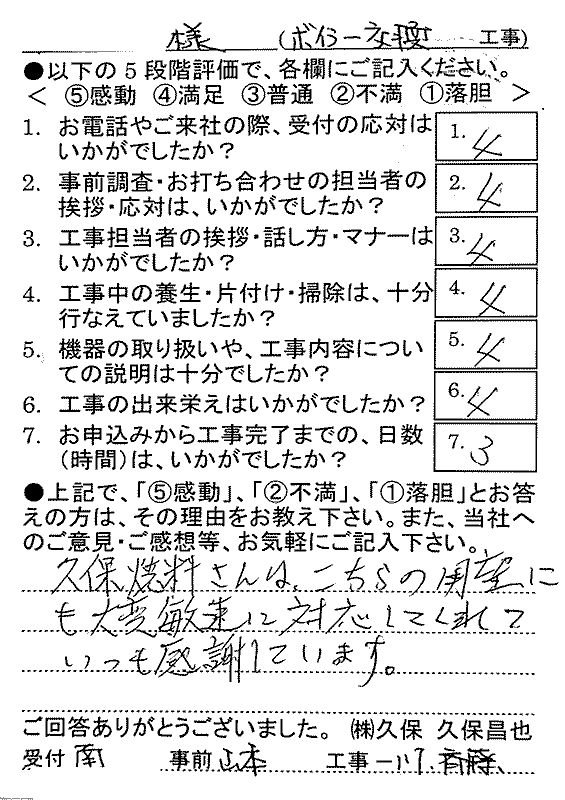 様 (ボイラー交換 工事)
●以下の5段階評価で、各欄にご記入ください。
＜ ⑤感動 ④満足 ③普通 ②不満 ①落胆 ＞
1. お電話やご来社の際、受付の応対は
いかがでしたか？
1. 4
2. 事前調査・お打ち合わせの担当者の
挨拶・応対は、いかがでしたか？
2. 4
3. 工事担当者の挨拶・話し方・マナーは
いかがでしたか？
3. 4
4. 工事中の養生・片付け・掃除は、十分
行なえていましたか？
4. 4
5. 機器の取り扱いや、工事内容につい
ての説明は十分でしたか？
5. 4
6. 工事の出来栄えはいかがでしたか？
6. 4
7. お申込みから工事完了までの、日数
（時間）は、いかがでしたか？
7. 3
●上記で、「⑤感動」、「②不満」、「①落胆」とお答
えの方は、その理由をお教え下さい。また、当社へ
のご意見・ご感想等、お気軽にご記入下さい。
久保燃料さんは、こちらの用望に
も大変敏速に対応してくれて
いつも感謝しています。
ご回答ありがとうございました。 ㈱久保 久保昌也
受付 南 事前 山本 工事 一川、斉藤